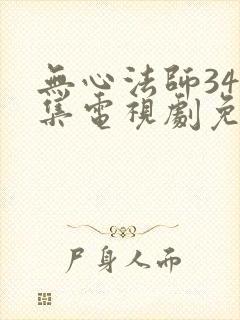 無心法師34
集電視劇免
尸身人而